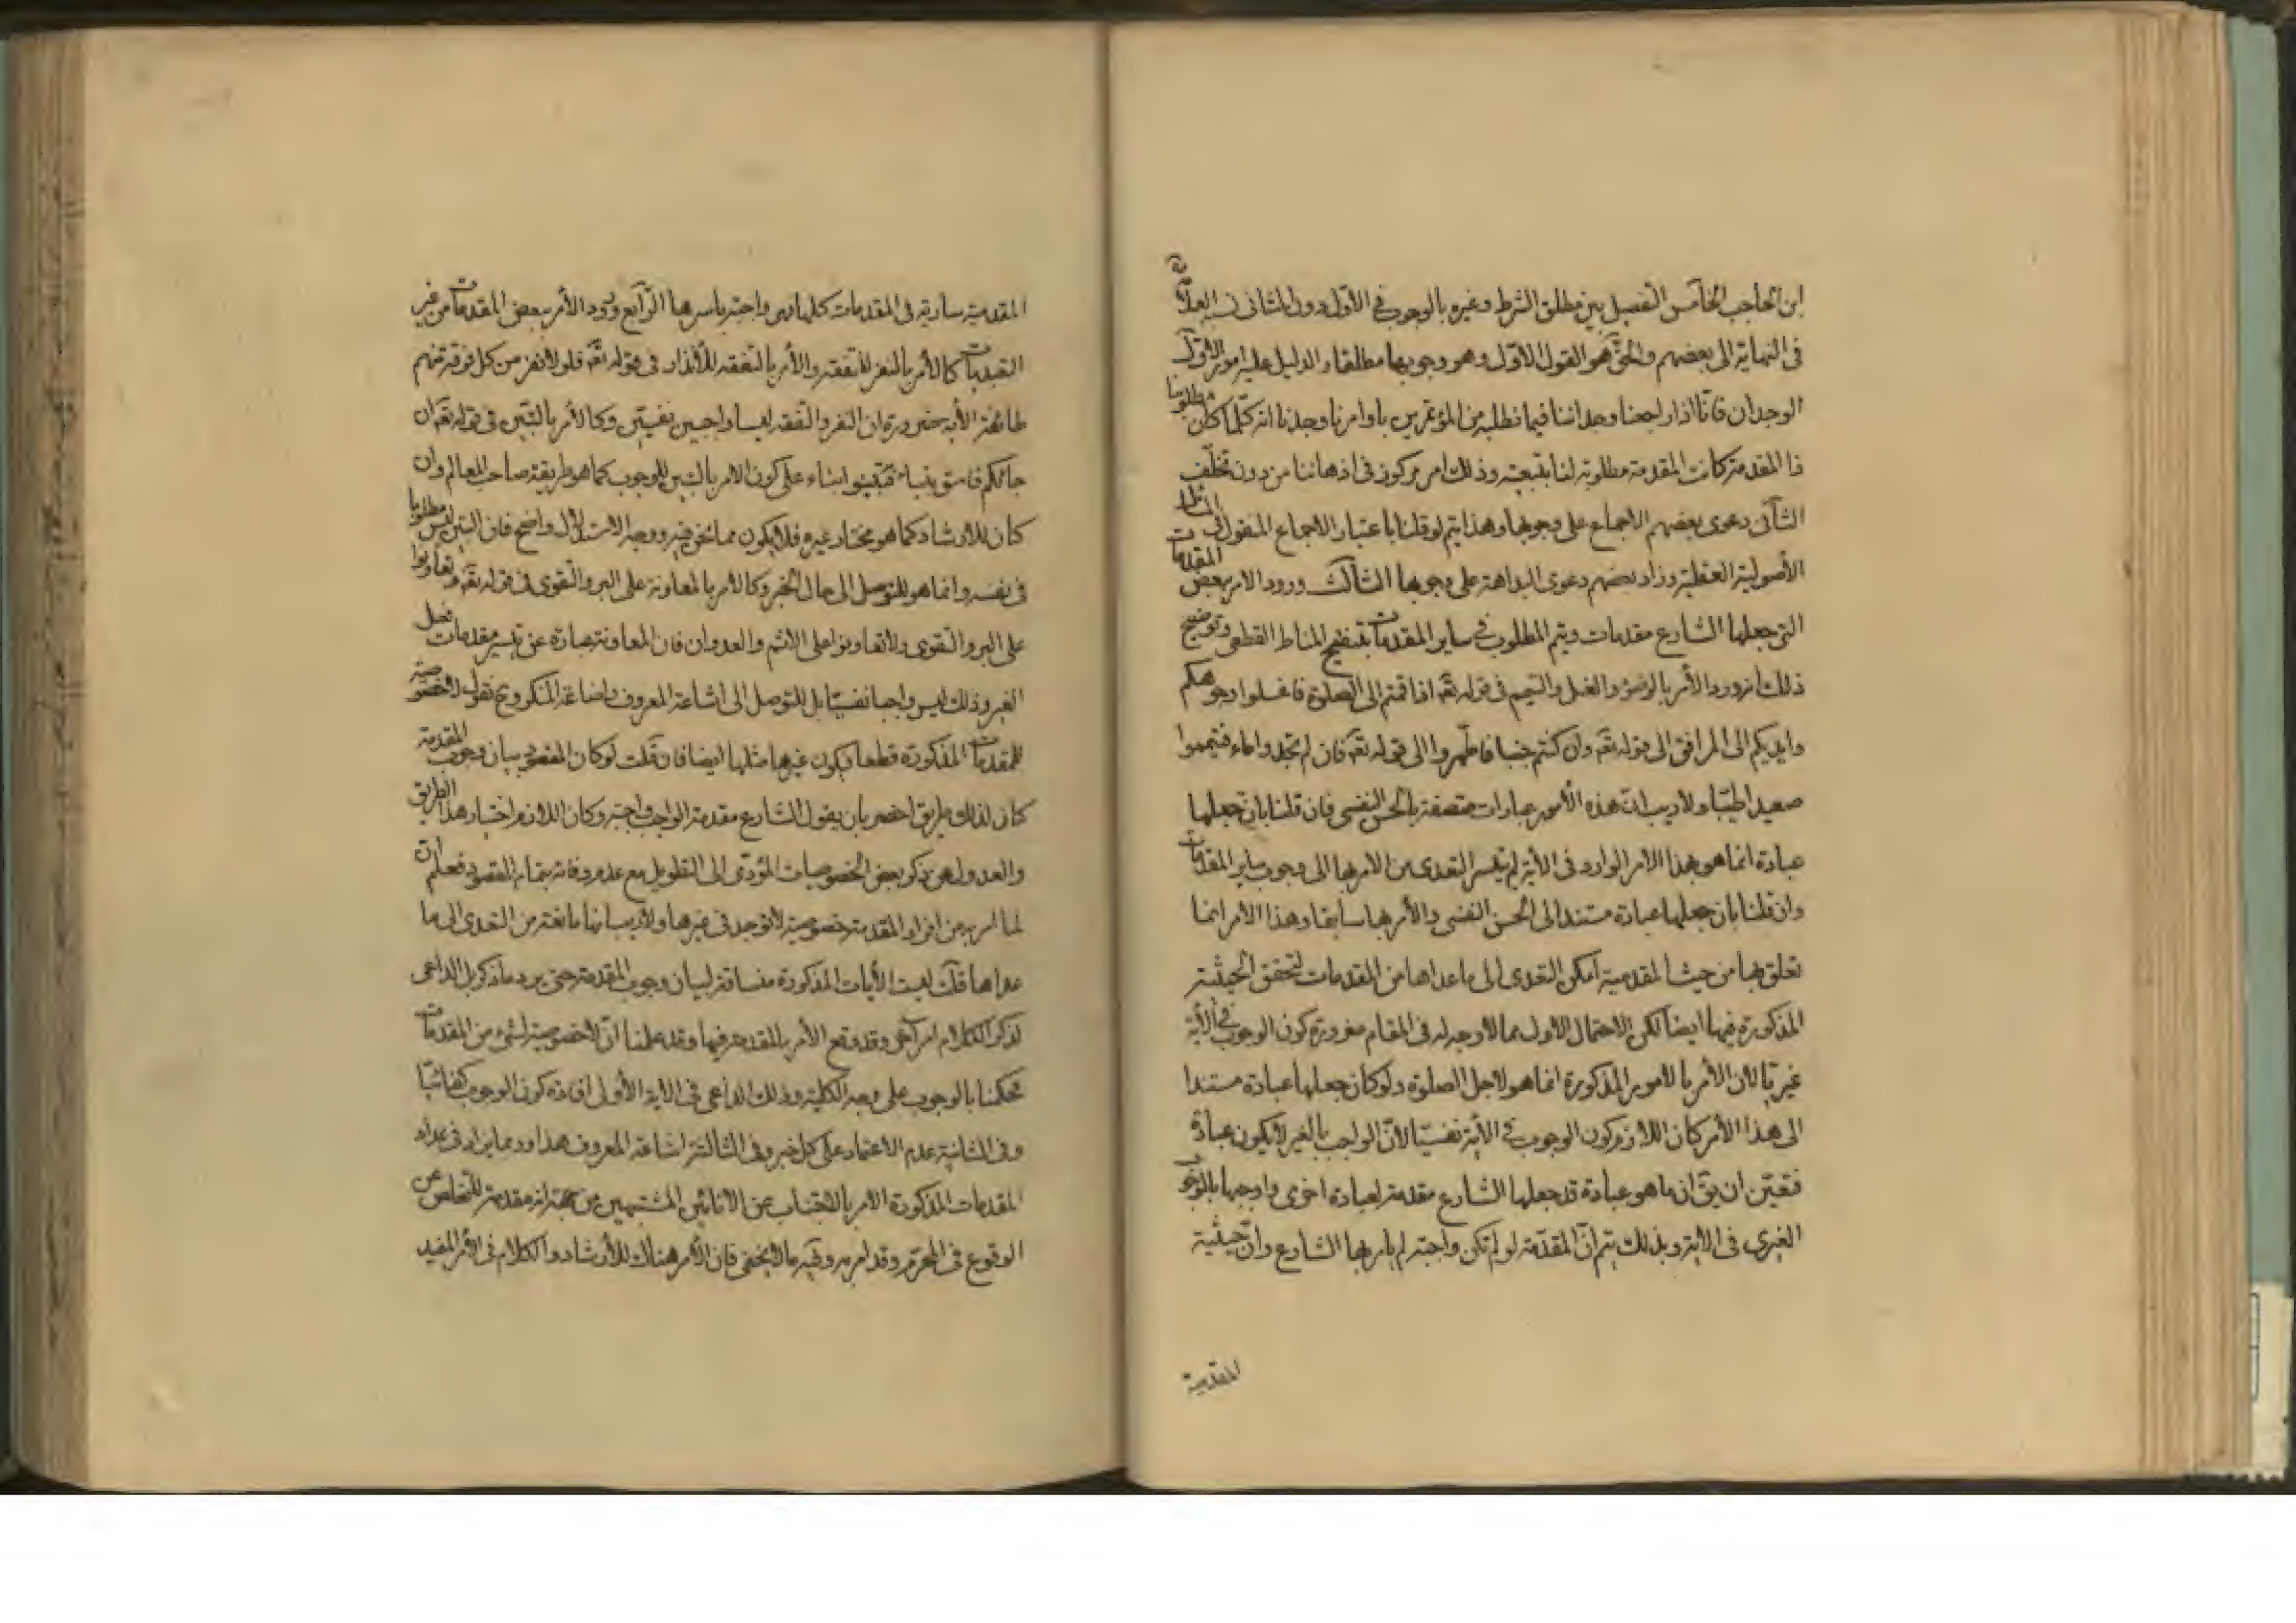 ابن الحاجب الخامس التفصيل بين مطلق الشرط وغيره بالوجوب في الاول دون الثاني نسبه العلامة
في النهاية الى بعضهم والحق هو القول الاول وهو وجوبها مطلقا والدليل عليه امور الاول
الوجدان فانا اذا راجعنا وجداننا فيما نطلبه من المؤتمرين باوامرنا وجدنا انه كلما كان مطلوبنا
ذا المقدمة كانت المقدمة مطلوبة لنا بتبعيته وذلك امر مركوز في اذهاننا من دون تخلف
الثاني دعوى بعضهم الاجماع على وجوبها وهذا يتم لو قلنا باعتبار الاجماع المنقول في المسائل
الأصولية العقلية وزاد بعضهم دعوى البداهة على وجوبها الثالث ورود الامر ببعض المقدمات
التي جعلها الشارع مقدمات ويتم المطلوب في ساير المقدمات بتنقيح المناط القطعي وتوضيح
ذلك انه ورد الأمر بالوضوء والغسل والتيمم في قوله تعه اذا قمتم الى الصلوة فاغسلوا وجوهكم
وايديكم الى المرافق الى قوله تعه وان كنتم جنبا فاطهروا الى قوله تعه فان لم تجدوا ماء فتيمموا
صعيدا طيبا ولا ريب ان هذه الأمور عبادات متصفة بالحسن النفسي فان قلنا بان جعلها
عبادة انما هو بهذا الامر الوارد في الأية لم يتيسر التعدي من الامر بها الى وجوب ساير المقدمات
وان قلنا بان جعلها عبادة مستند الى الحسن النفسي والأمر بها سابقا وهذا الامر انما
تعلق بها من حيث المقدمية امكن التعدي الى ما عداها من المقدمات لتحقق الحيثية
المذكورة فيها ايضا لكن الاحتمال الاول مما لا وجه له في المقام ضرورة كون الوجوب في الأية
غيريا لان الأمر بالامور المذكورة انما هو لاجل الصلوة ولو كان جعلها عبادة مستندا
الى هذا الأمر كان اللازم كون الوجوب في الأية نفسيا لأن الواجب بالغير لا يكون عبادة
فتعين ان يق ان ما هو عبادة قد جعلها الشارع مقدمة لعبادة اخرى واوجبها بالوجوب
الغيري في الاية وبذلك يتم ان المقدمة لو لم تكن واجبة لم يامر بها الشارع وان حيثية
المقدمية
المقدمية سارية في المقدمات كلها فهي واجبة باسرها الرابع ورود الأمر ببعض المقدمات من غير
التعبديات كالأمر بالنفر للتفقه والأمر بالتفقه للأنذار في قوله تعه فلولا نفر من كل فرقة منهم
طائفة الأية ضرورة ان النفر والتفقه ليسا واجبين نفسيين وكالأمر بالتبين في قوله تعه ان
جائكم فاسق بنباء فتبينوا بناء على كون الامر بالتبين للوجوب كما هو طريقة صاحب المعالم وان
كان للارشاد كما هو مختار غيره فلا يكون مما نحن فيه ووجه الاستدلال واضح فان التبين ليس مطلوبا
في نفسه وانما هو للتوصل الى حال الخبر وكالامر بالمعاونة على البر والتقوى في قوله تعه وتعاونوا
على البر والتقوى ولا تعاونوا على الاثم والعدوان فان المعاونة عبارة عن تيسير مقدمات فعل
الغير وذلك ليس واجبا نفسيا بل للتوصل الى اشاعة المعروف واضاعة المنكر وح نقول لا خصوصية
للمقدمات المذكورة قطعا فيكون غيرها مثلها ايضا فان قلت لو كان المقصود بيان وجوب المقدمة
كان لذلك طريق اخصر بان يقول الشارع مقدمة الواجب واجبة وكان اللازم اختيار هذا الطريق
والعدول عن ذكر بعض الخصوصيات المؤدي الى التطويل مع عدم وفائه بتمام المقصود فعلم ان
لما امر به من افراد المقدمة خصوصية لا توجد في غيرها ولا ريب انها مانعة من التعدي الى ما
عداها قلت ليست الأيات المذكورة منساقة لبيان وجوب المقدمة حتى يرد ما ذكر بل الداعي
لذكر الكلام امر اخر وقد وقع الأمر بالمقدمة فيها وقد علمنا ان لا خصوصية لشئ من المقدمات
فحكمنا بالوجوب على وجه الكلية وذلك الداعي في الاية الأولى افادة كون الوجوب كفائيا
وفي الثانية عدم الاعتماد على كل خبر وفي الثالثة اشاعة المعروف هذا وربما يزاد في عداد
المقدمات المذكورة الامر بالاجتناب عن الانائين المشتبهين من جهة انه مقدمة للتخلص عن
الوقوع في المحرم وقد امر به وفيه ما لا يخفى فان الأمر هناك للأرشاد والكلام في الأمر المفيد